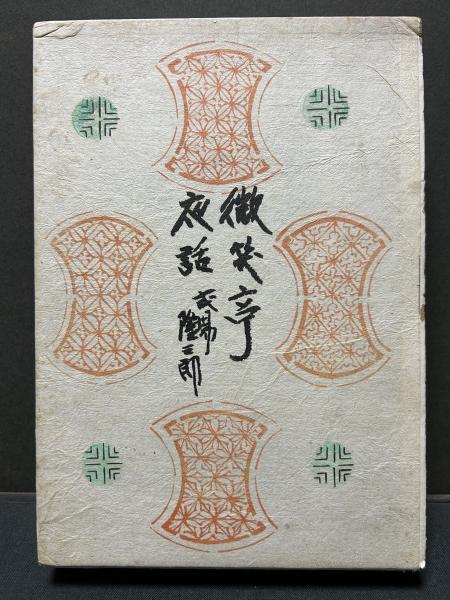 微笑亭
夜話
式場隆三郎